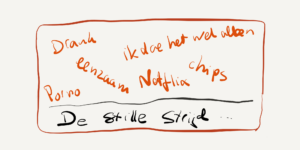 Drank
ik doe het wel alleen
eenzaam Netflix chips
Porno
De Stille Strijd ...